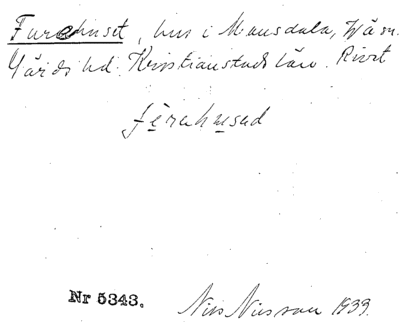 Furehuset, hus i Mansdala, Träne sn.
Gärds hd. Kristianstads län. Rivet
fẹrahụsad
Nr 5343.
Nils Nilsson 1933.